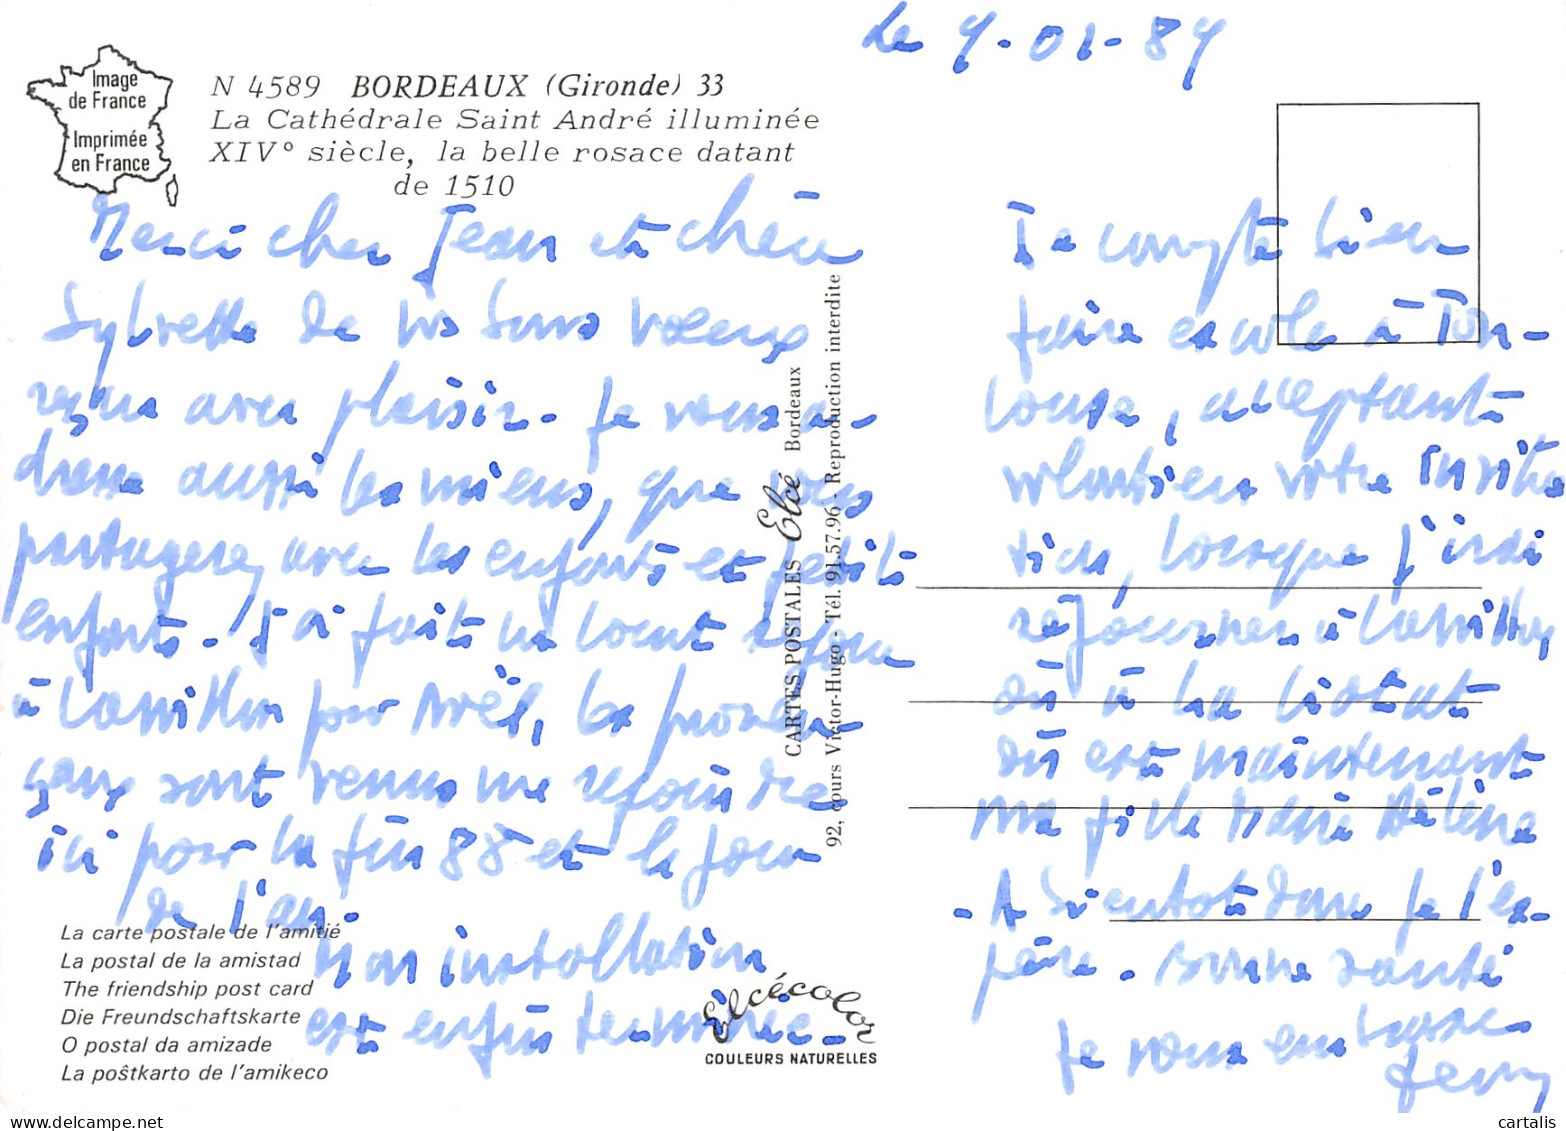 le 9-01-89
Image
de France
Imprimée
en France
N 4589 BORDEAUX (Gironde) 33
La Cathédrale Saint André illuminée
XIV° siècle, la belle rosace datant
de 1510
Merci cher Jean et chère
Sylvette de vos bons voeux
reçus avec plaisir. Je vous a-
dresse aussi les miens, que vous
partagerez avec les enfants et petits
enfants. J'ai fait un court séjour
à pour Noël, les
sont venus me rejoindre
ici pour la fin 88 et le jour
de l'an.
Mon installation
est enfin terminée.
La carte postale de l'amitié
La postal de la amistad
The friendship post card
Die Freundschaftskarte
O postal da amizade
La poŝtkarto de l'amikeco
Elcécolor
COULEURS NATURELLES
CARTES POSTALES Elcé Bordeaux
92, cours Victor-Hugo - Tél. 91.57.96 - Reproduction interdite
Je compte bien
faire escale à Tou-
louse, acceptant
volontiers votre invita
tion, lorsque j'irai
séjourner à
ou à La
où est maintenant
ma fille Marie Hélène
- A bientôt donc je l'es-
père. Bonne santé
Je vous embrasse